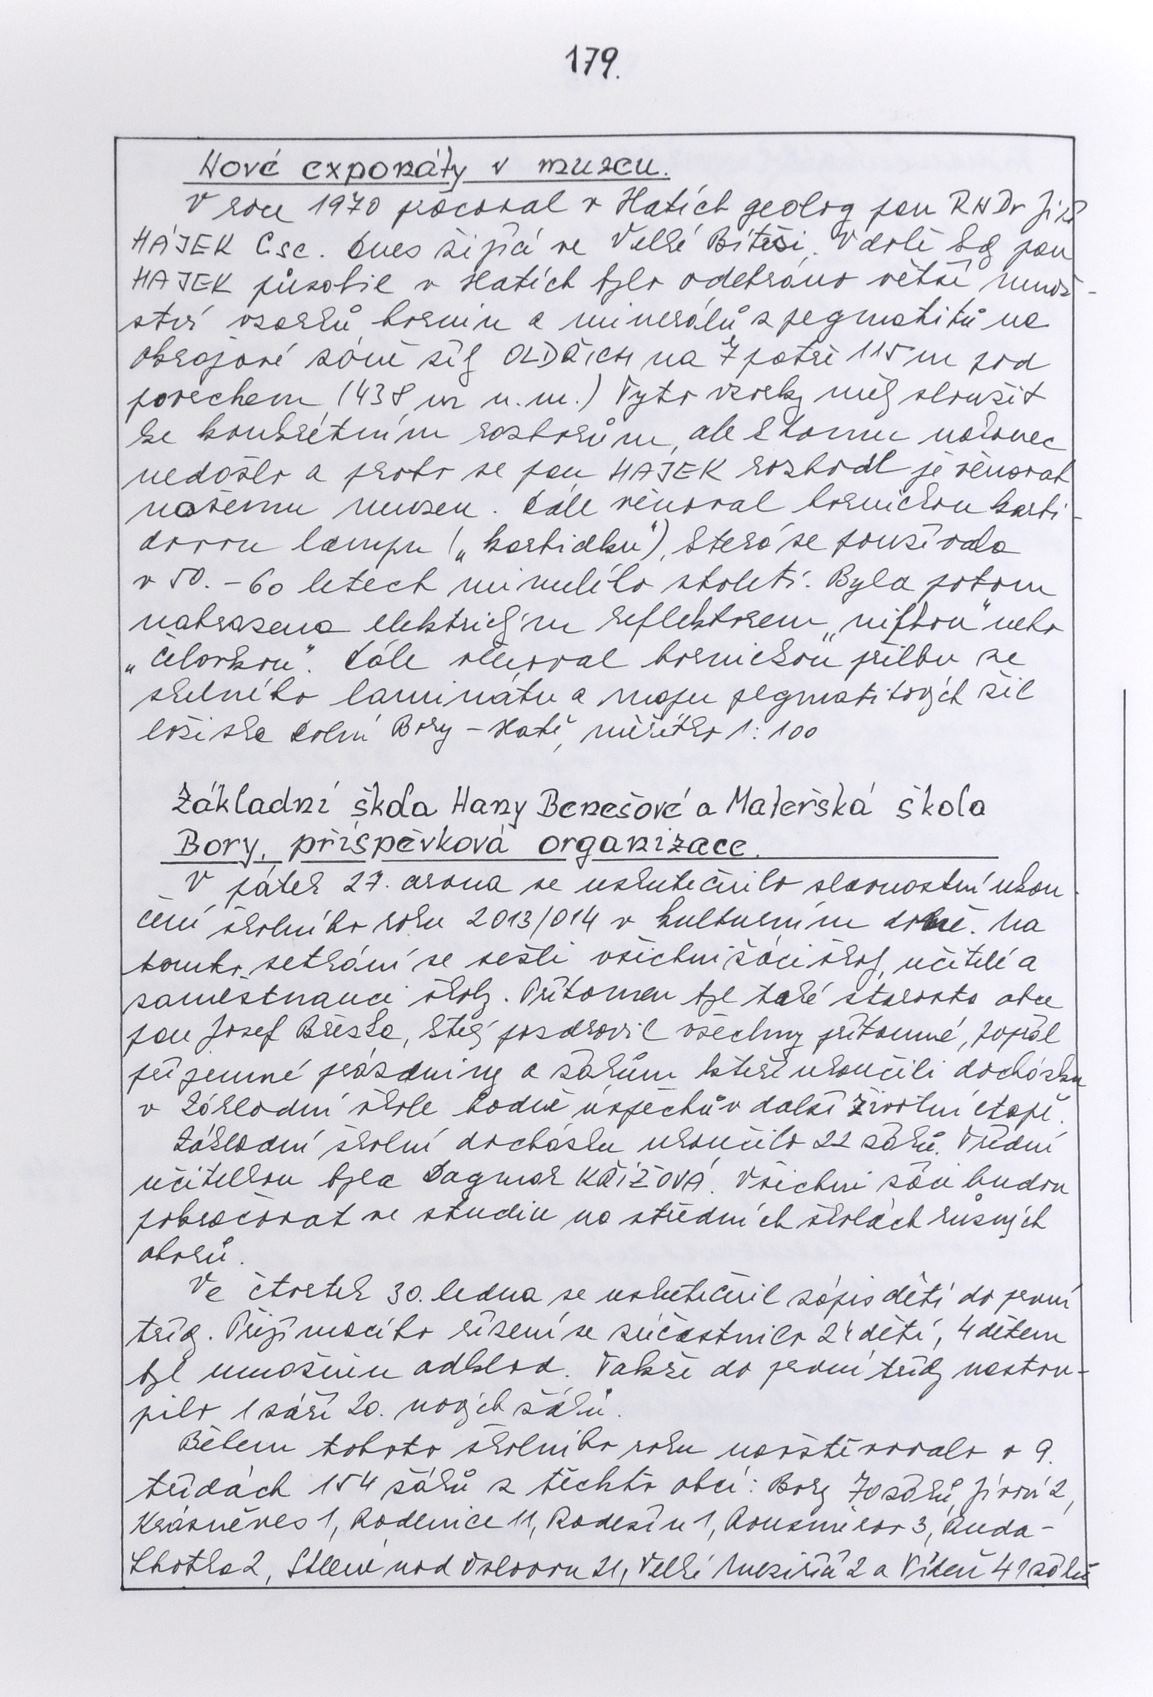 179.
Nové exponáty v muzeu.
V roce 1970 pracoval v Hatích geolog pan RNDr Jiří
HÁJEK Csc. dnes žijící ve Velké Bíteši. V době kdy pan
HAJEK působil v Hatích bylo odebráno větší množ-
ství vzorků hornin a minerálů z pegmatitů na
obrajové zóně žíly OLDŘICH na 7 patře 115 m pod
povrchem (438 m n.m.) Tyto vzorky měly sloužit
ke konkrétním rozborům, ale k tomu nakonec
nedošlo a proto se pan HAJEK rozhodl je věnovat
našemu muzeu. Dále věnoval hornickou karbi-
dovou lampu („karbidku"), která se používala
v 50. – 60 letech minulého století. Byla potom
nahrazena elektrickým reflektorem „nifkou" nebo
„čelovkou". Dále věnoval hornickou přilbu ze
skelného laminátu a mapu pegmatitových žil
ložiska Dolní Bory – Hatě, měřítko 1:100
Základní škola Hany Benešové a Mateřská škola
Bory, příspěvková organizace.
V pátek 27. června se uskutečnilo slavnostní ukon-
čení školního roku 2013/014 v kulturním domě. Na
tomto setkání se sešli všichni žáci školy, učitelé a
zaměstnanci školy. Přítomen byl také starosta obce
pan Josef Březka, který pozdravil všechny přítomné, popřál
příjemné prázdniny a žákům kteří ukončili docházku
v základní škole hodně úspěchů v další životní etapě.
Základní školní docházku ukončilo 22 žáků. Třídní
učitelkou byla Dagmar KŘÍŽOVÁ. Všichni žáci budou
pokračovat ve studiu na středních školách různých
oborů.
Ve čtvrtek 30. ledna se uskutečnil zápis dětí do první
třídy. Přijímacího řízení se zúčastnilo 24 dětí, 4 dětem
byl umožněn odklad. Takže do první třídy nastou-
pilo 1 září 20. nových žáků.
Během tohoto školního roku navštěvovalo v 9.
třídách 154 žáků z těchto obcí: Bory 70 žáků, Jívoví 2,
Krásněves 1, Radenice 11, Radešín 1, Rousměrov 3, Ruda –
Lhotka 2, Sklené nad Oslavou 21, Velké Meziříčí 2 a Vídeň 41 žáků